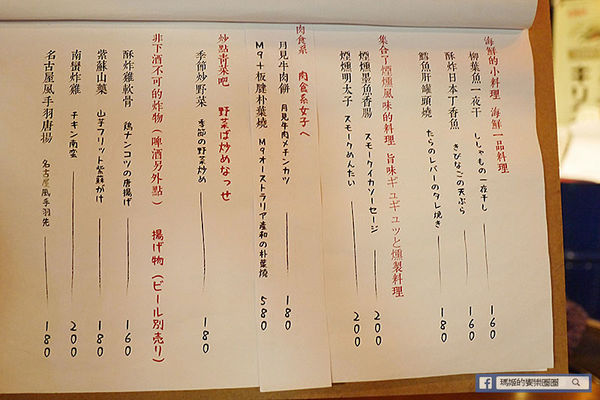 海鮮的小料理 海鮮一品料理
柳葉魚一夜干 ししゃもの一夜干し 160
酥炸日本丁香魚 きびなごの天ぷら 160
鱈魚肝罐頭燒 たらのレバーのタレ焼き 180
集合了煙燻風味的料理 旨味ギュギュッと燻製料理
煙燻墨魚香腸 スモークイカソーセージ 200
煙燻明太子 スモークめんたい 200
肉食系 肉食系女子へ
月見牛肉餅 月見牛肉メンチカツ 180
M9+板腱朴葉燒 M9オーストラリア産和の朴葉燒 580
炒點青菜吧 野菜ば炒めなっせ
季節炒野菜 季節の野菜炒め 180
非下酒不可的炸物(啤酒另外點) 揚げ物(ビール別売り)
酥炸雞軟骨 鶏ナンコツの唐揚げ 160
紫蘇山藥 山芋フリット紫蘇がけ 180
南蠻炸雞 チキン南蛮 200
名古屋風手羽唐揚 名古屋風手羽先 180
瑪姬的饗樂園圈